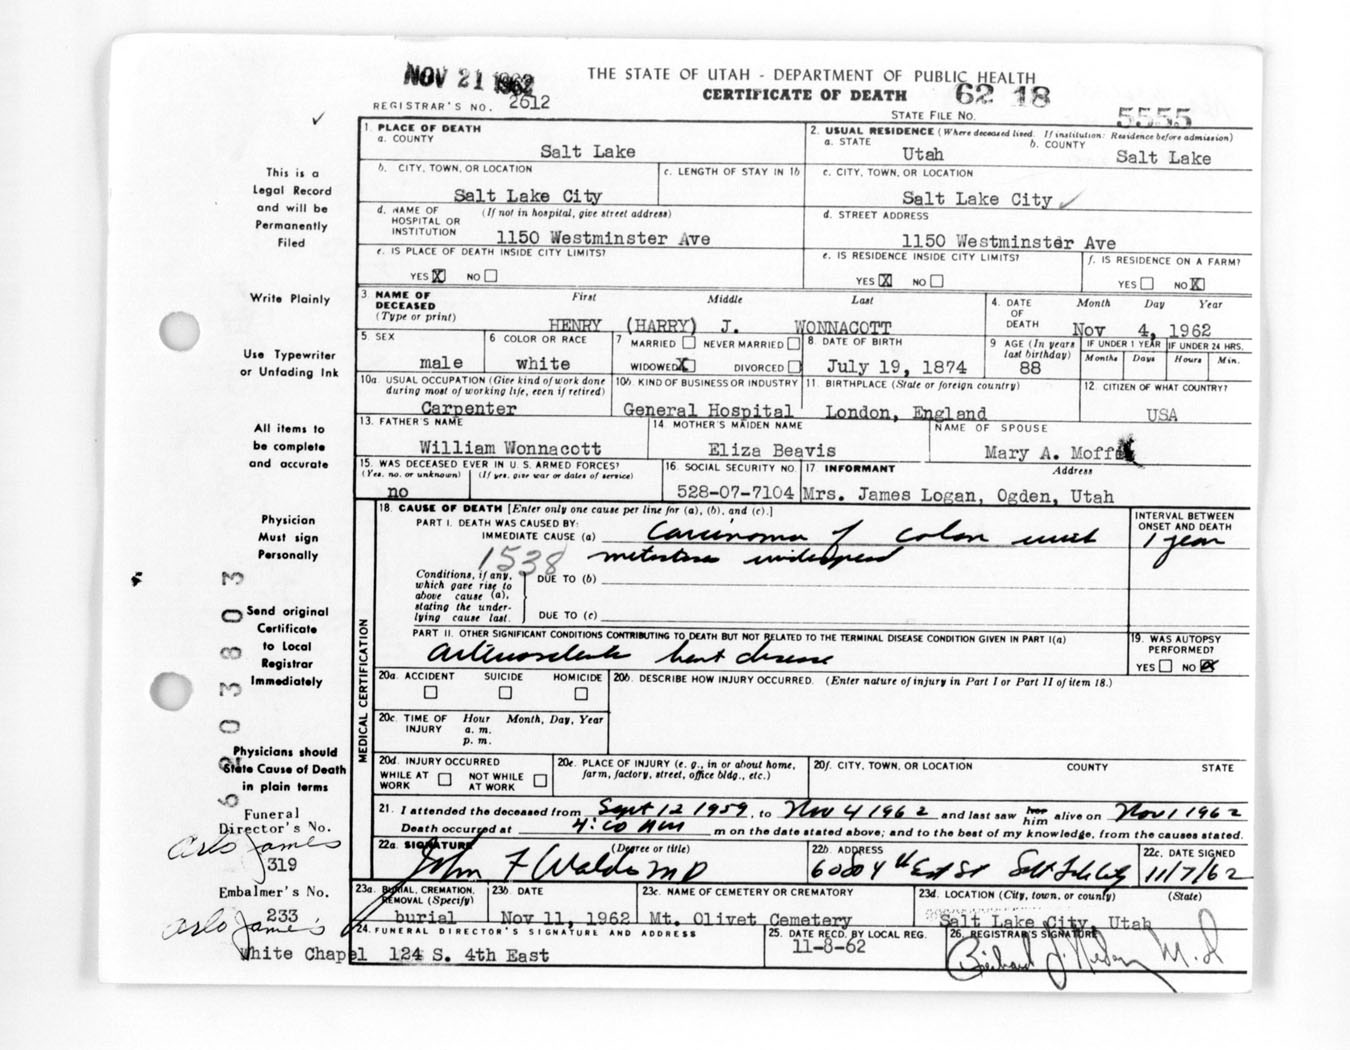 NOV 21 1962
THE STATE OF UTAH - DEPARTMENT OF PUBLIC HEALTH
CERTIFICATE OF DEATH 62 18
REGISTRAR'S NO. 2612
STATE FILE NO. 5555
This is a
Legal Record
and will be
Permanently
Filed
Write Plainly
Use Typewriter
or Unfading Ink
All items to
be complete
and accurate
Physician
Must sign
Personally
Send original
Certificate
to Local
Registrar
Immediately
Physicians should
State Cause of Death
in plain terms
Funeral
Director's No.
Arlo James
319
Embalmer's No.
233
Arlo James
1. PLACE OF DEATH
a. COUNTY
Salt Lake
2. USUAL RESIDENCE (Where deceased lived. If institution: Residence before admission)
a. STATE b. COUNTY
Utah Salt Lake
b. CITY, TOWN, OR LOCATION
Salt Lake City
c. LENGTH OF STAY IN 1b
c. CITY, TOWN, OR LOCATION
Salt Lake City
d. NAME OF HOSPITAL OR INSTITUTION (If not in hospital, give street address)
1150 Westminster Ave
d. STREET ADDRESS
1150 Westminster Ave
e. IS PLACE OF DEATH INSIDE CITY LIMITS?
YES X NO
e. IS RESIDENCE INSIDE CITY LIMITS?
YES X NO
f. IS RESIDENCE ON A FARM?
YES NO X
3 NAME OF DECEASED (Type or print) First Middle Last
HENRY (HARRY) J. WONNACOTT
4. DATE OF DEATH Month Day Year
Nov 4, 1962
5. SEX
male
6 COLOR OR RACE
white
7 MARRIED NEVER MARRIED
WIDOWED X DIVORCED
8. DATE OF BIRTH
July 19, 1874
9 AGE (In years last birthday)
88
IF UNDER 1 YEAR IF UNDER 24 HRS.
Months Days Hours Min.
10a. USUAL OCCUPATION (Give kind of work done during most of working life, even if retired)
Carpenter
10b. KIND OF BUSINESS OR INDUSTRY
General Hospital
11. BIRTHPLACE (State or foreign country)
London, England
12. CITIZEN OF WHAT COUNTRY?
USA
13. FATHER'S NAME
William Wonnacott
14 MOTHER'S MAIDEN NAME
Eliza Beavis
NAME OF SPOUSE
Mary A.
15. WAS DECEASED EVER IN U. S. ARMED FORCES?
(Yes, no, or unknown) (If yes, give war or dates of service)
no
16. SOCIAL SECURITY NO.
528-07-7104
17. INFORMANT Address
Mrs. James Logan, Ogden, Utah
MEDICAL CERTIFICATION
18. CAUSE OF DEATH [Enter only one cause per line for (a), (b), and (c).]
PART I. DEATH WAS CAUSED BY:
IMMEDIATE CAUSE (a) Carcinoma of colon with
1538 metastases widespread
INTERVAL BETWEEN ONSET AND DEATH
1 year
Conditions, if any, which gave rise to above cause (a), stating the underlying cause last.
DUE TO (b)
DUE TO (c)
PART II. OTHER SIGNIFICANT CONDITIONS CONTRIBUTING TO DEATH BUT NOT RELATED TO THE TERMINAL DISEASE CONDITION GIVEN IN PART I(a)
arteriosclerotic heart disease
19. WAS AUTOPSY PERFORMED?
YES NO X
20a. ACCIDENT SUICIDE HOMICIDE
20b. DESCRIBE HOW INJURY OCCURRED. (Enter nature of injury in Part I or Part II of item 18.)
20c. TIME OF INJURY Hour Month, Day, Year
a. m.
p. m.
20d. INJURY OCCURRED
WHILE AT WORK NOT WHILE AT WORK
20e. PLACE OF INJURY (e. g., in or about home, farm, factory, street, office bldg., etc.)
20f. CITY, TOWN, OR LOCATION COUNTY STATE
21. I attended the deceased from Sept 12 1959, to Nov 4 1962 and last saw him alive on Nov 1 1962
Death occurred at 4:00 Am m on the date stated above; and to the best of my knowledge, from the causes stated.
22a. SIGNATURE (Degree or title)
John F Waldo MD
22b. ADDRESS
22c. DATE SIGNED
11/7/62
23a. BURIAL, CREMATION, REMOVAL (Specify)
burial
23b. DATE
Nov 11, 1962
23c. NAME OF CEMETERY OR CREMATORY
Mt. Olivet Cemetery
23d. LOCATION (City, town, or county) (State)
Salt Lake City, Utah
24. FUNERAL DIRECTOR'S SIGNATURE AND ADDRESS
White Chapel 124 S. 4th East
25. DATE RECD. BY LOCAL REG.
11-8-62
26. REGISTRAR'S SIGNATURE